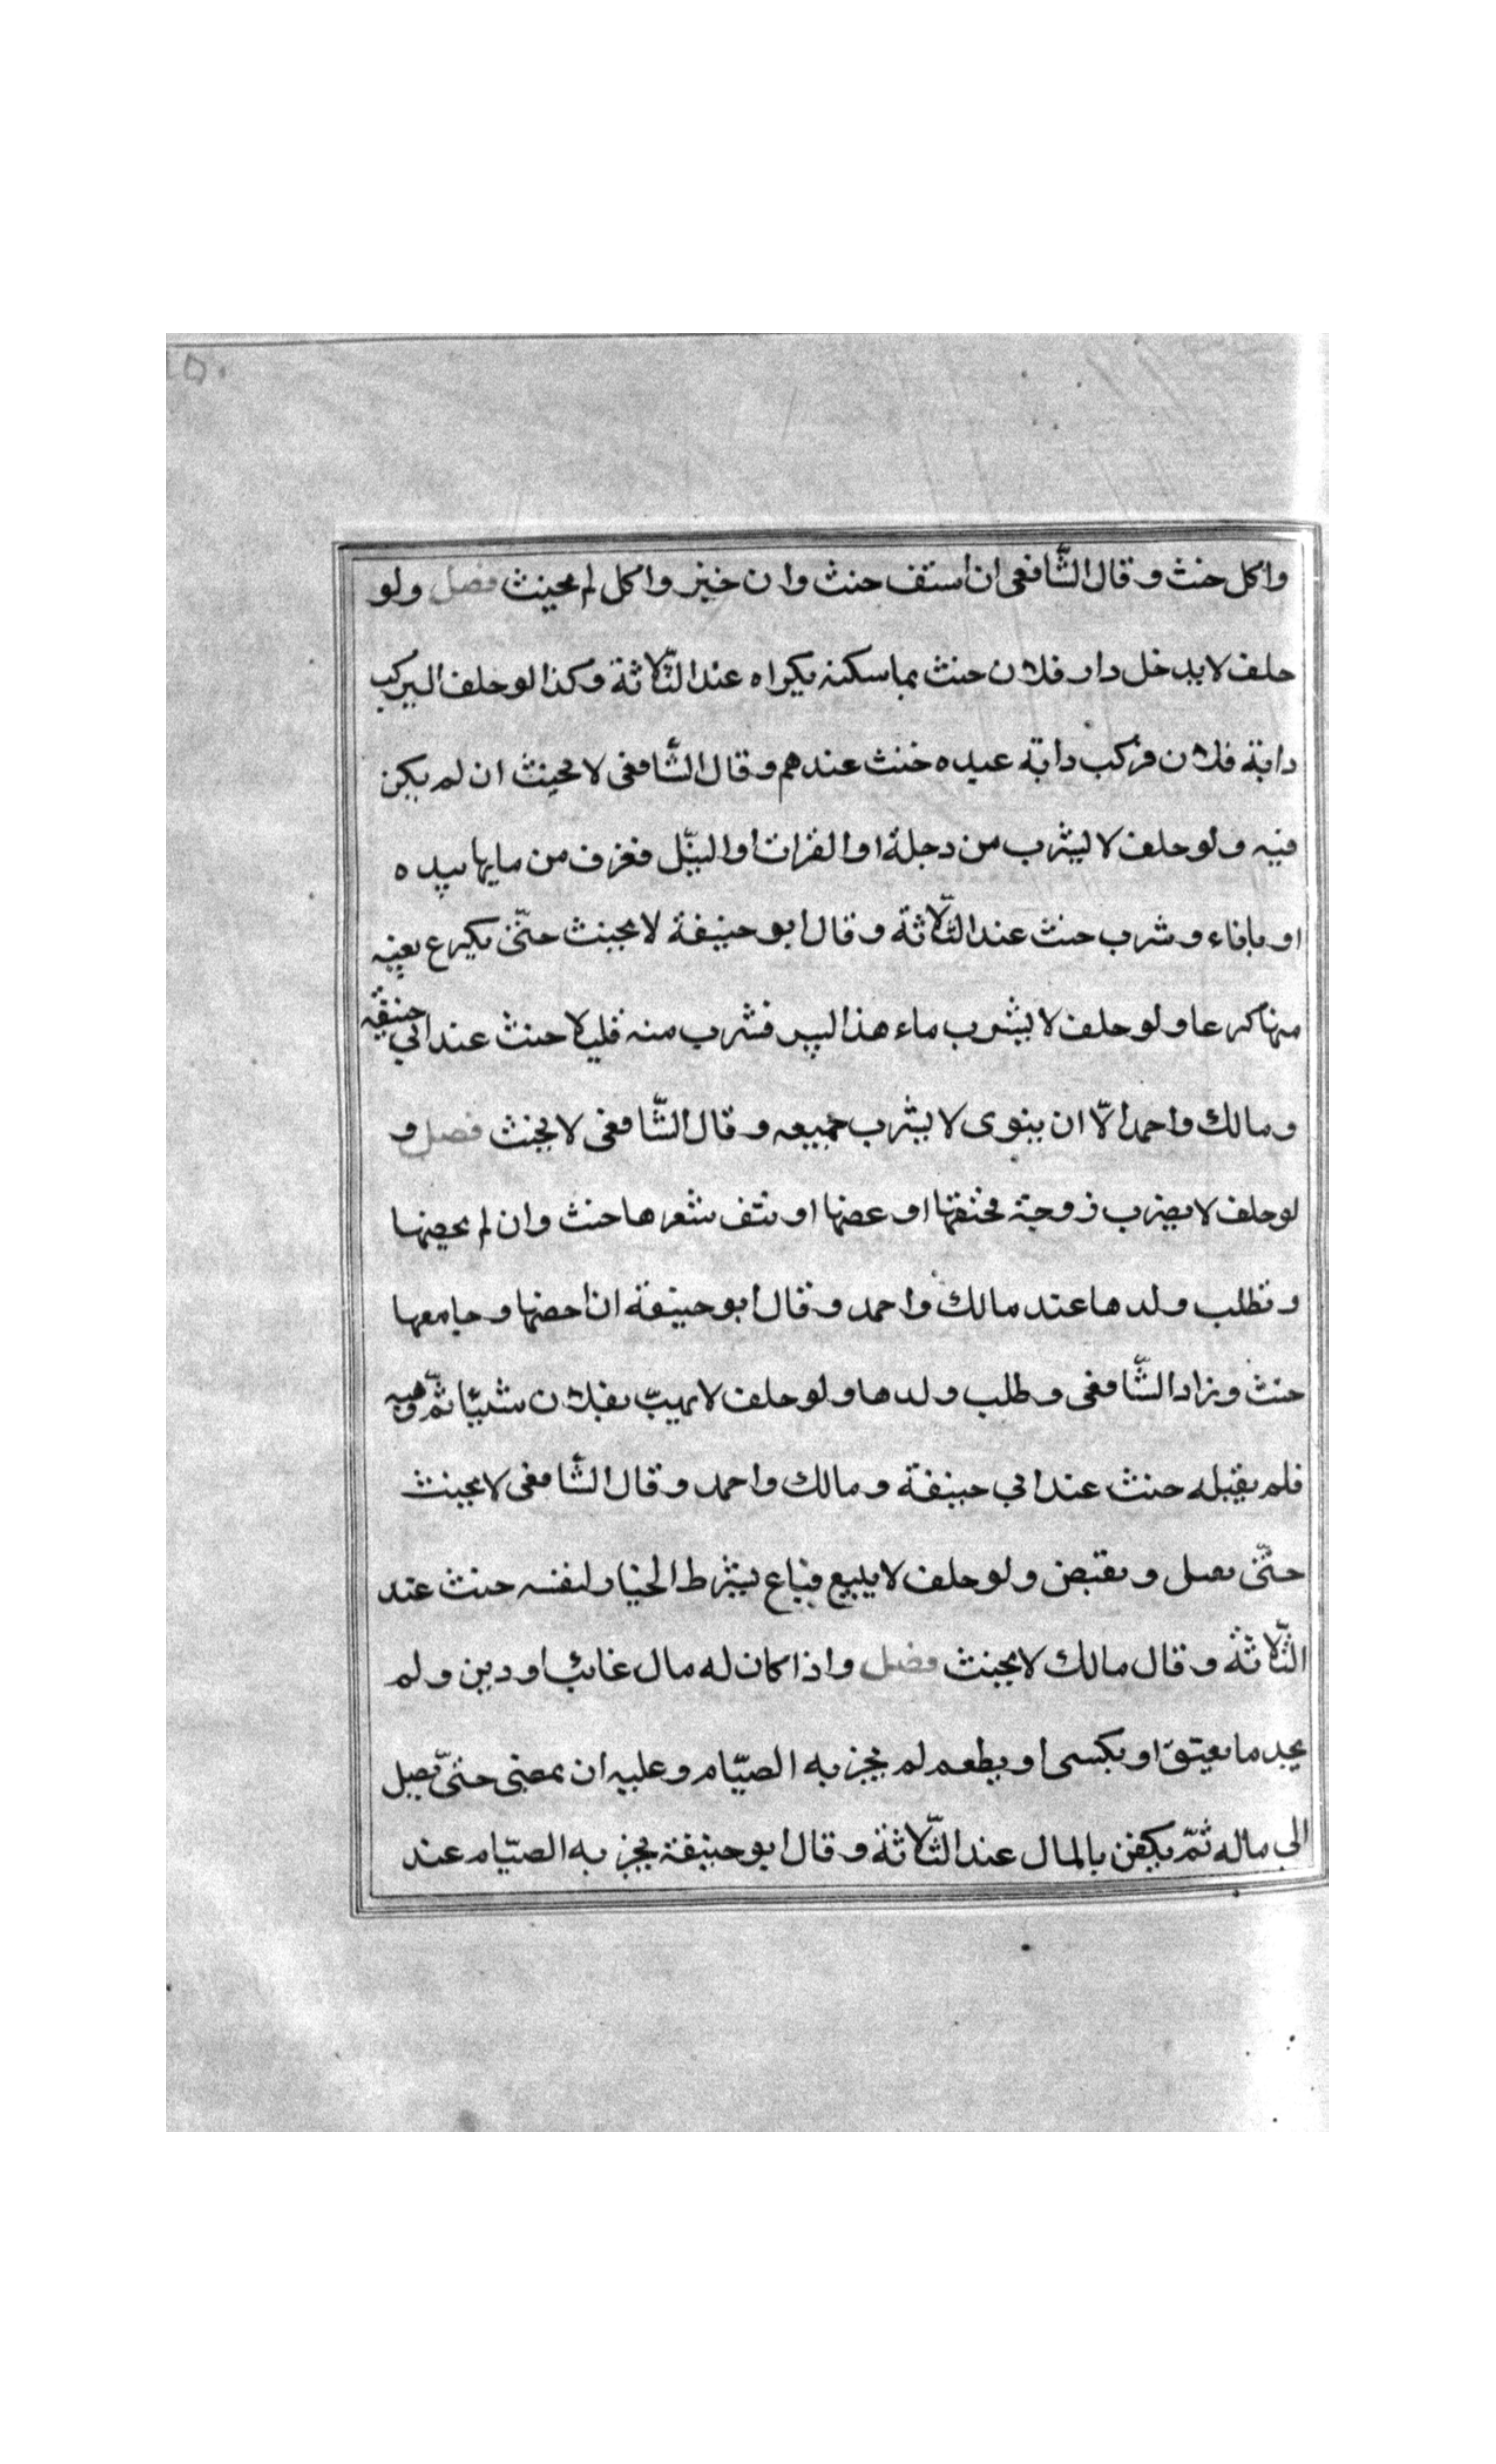 ١٥٠
واكل حنث وقال الشّافعى ان استف حنث وان خبز واكل لم يحنث فصل ولو
حلف لا يدخل دار فلان حنث بما سكنه بكراه عند الثّلاثة وكذا لو حلف اليركب
دابة فلان فركب دابة عبده حنث عندهم وقال الشّافعى لا يحنث ان لم يكن
فيه ولو حلف لا ليشرب من دجلة او الفرات او النيّل فغرف من مايها بيده
او باناء وشرب حنث عند الثّلاثة وقال ابو حنيفة لا يحنث حتّى يكرع بفيه
منها كرعا ولو حلف لا يشرب ماء هذا البير فشرب منه قليلا حنث عند ابي حنيفة
ومالك واحمد الاّ ان ينوى لا يشرب جميعه وقال الشّافعى لا يحنث فصل و
لو حلف لا يضرب زوجة فخنقها او عضها او نتف شعرها حنث وان لم يحصنها
وتطلب ولدها عند مالك واحمد وقال ابو حنيفة ان احصنها وجامعها
حنث وزاد الشّافعى وطلب ولدها ولو حلف لا يهبّ بفلان شيّا ثمّ وهبه
فلم يقبله حنث عند ابي حنيفة ومالك واحمد وقال الشّافعى لا يحنث
حتّى يصل ويقبض ولو حلف لا يبيع فباع بشرط الخيار لنفسه حنث عند
الثّلاثة وقال مالك لا يحنث فصل واذا كان له مال غائب او دين ولم
يجد ما يعتق او يكسى او يطعم لم يجز به الصيّام وعليه ان يمضى حتىّ يصل
الى ماله ثمّ يكفر بالمال عند الثّلاثة وقال ابو حنيفة يجز به الصيّام عند